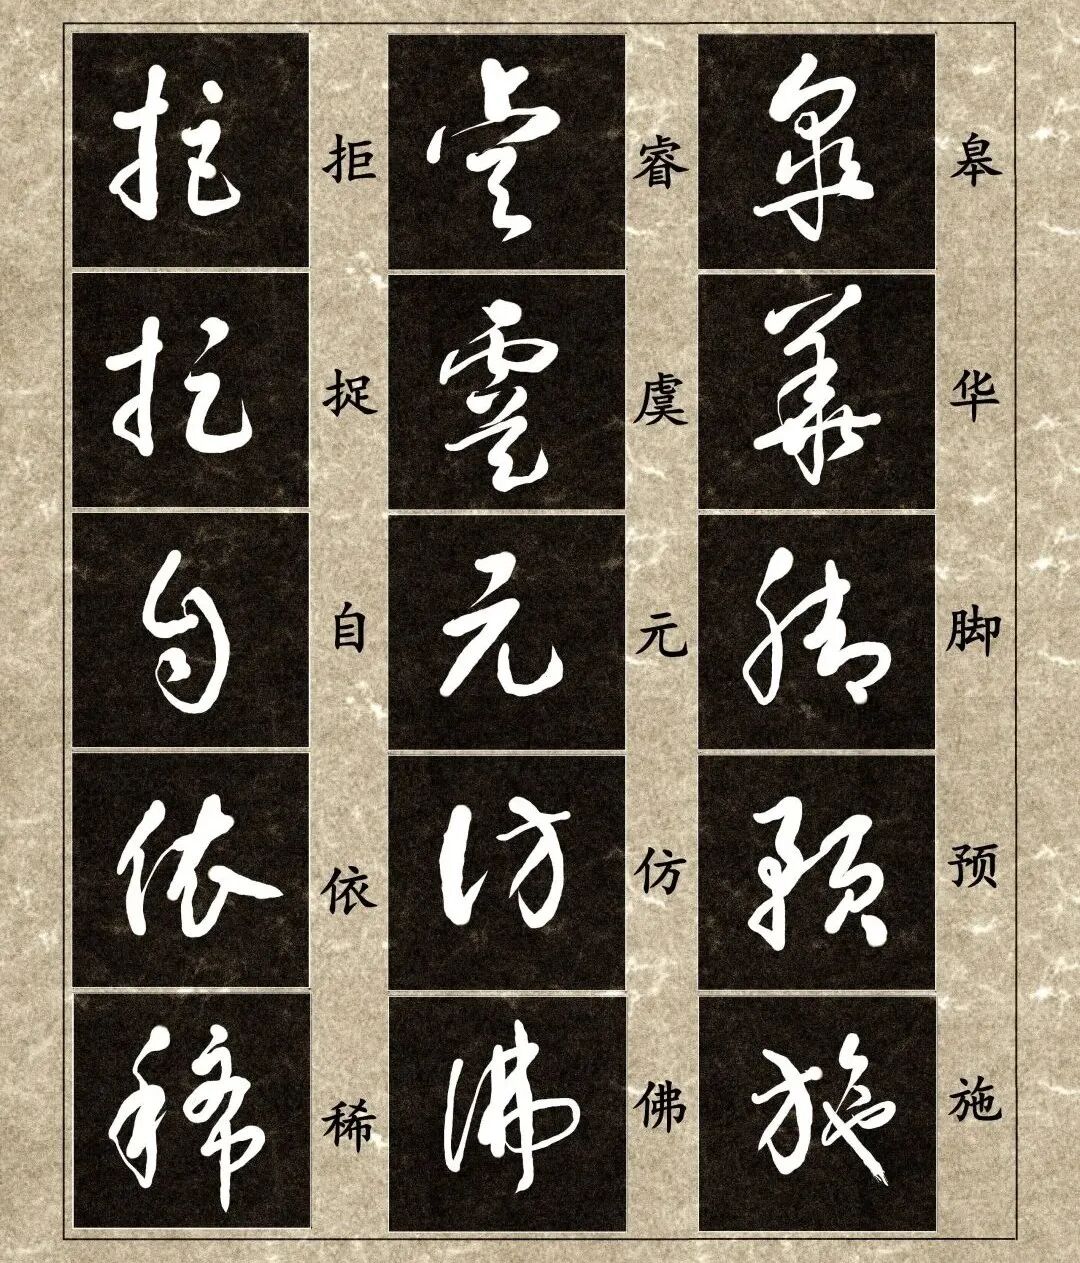 皋
华
脚
预
施
睿
虞
元
仿
佛
拒
捉
自
依
稀